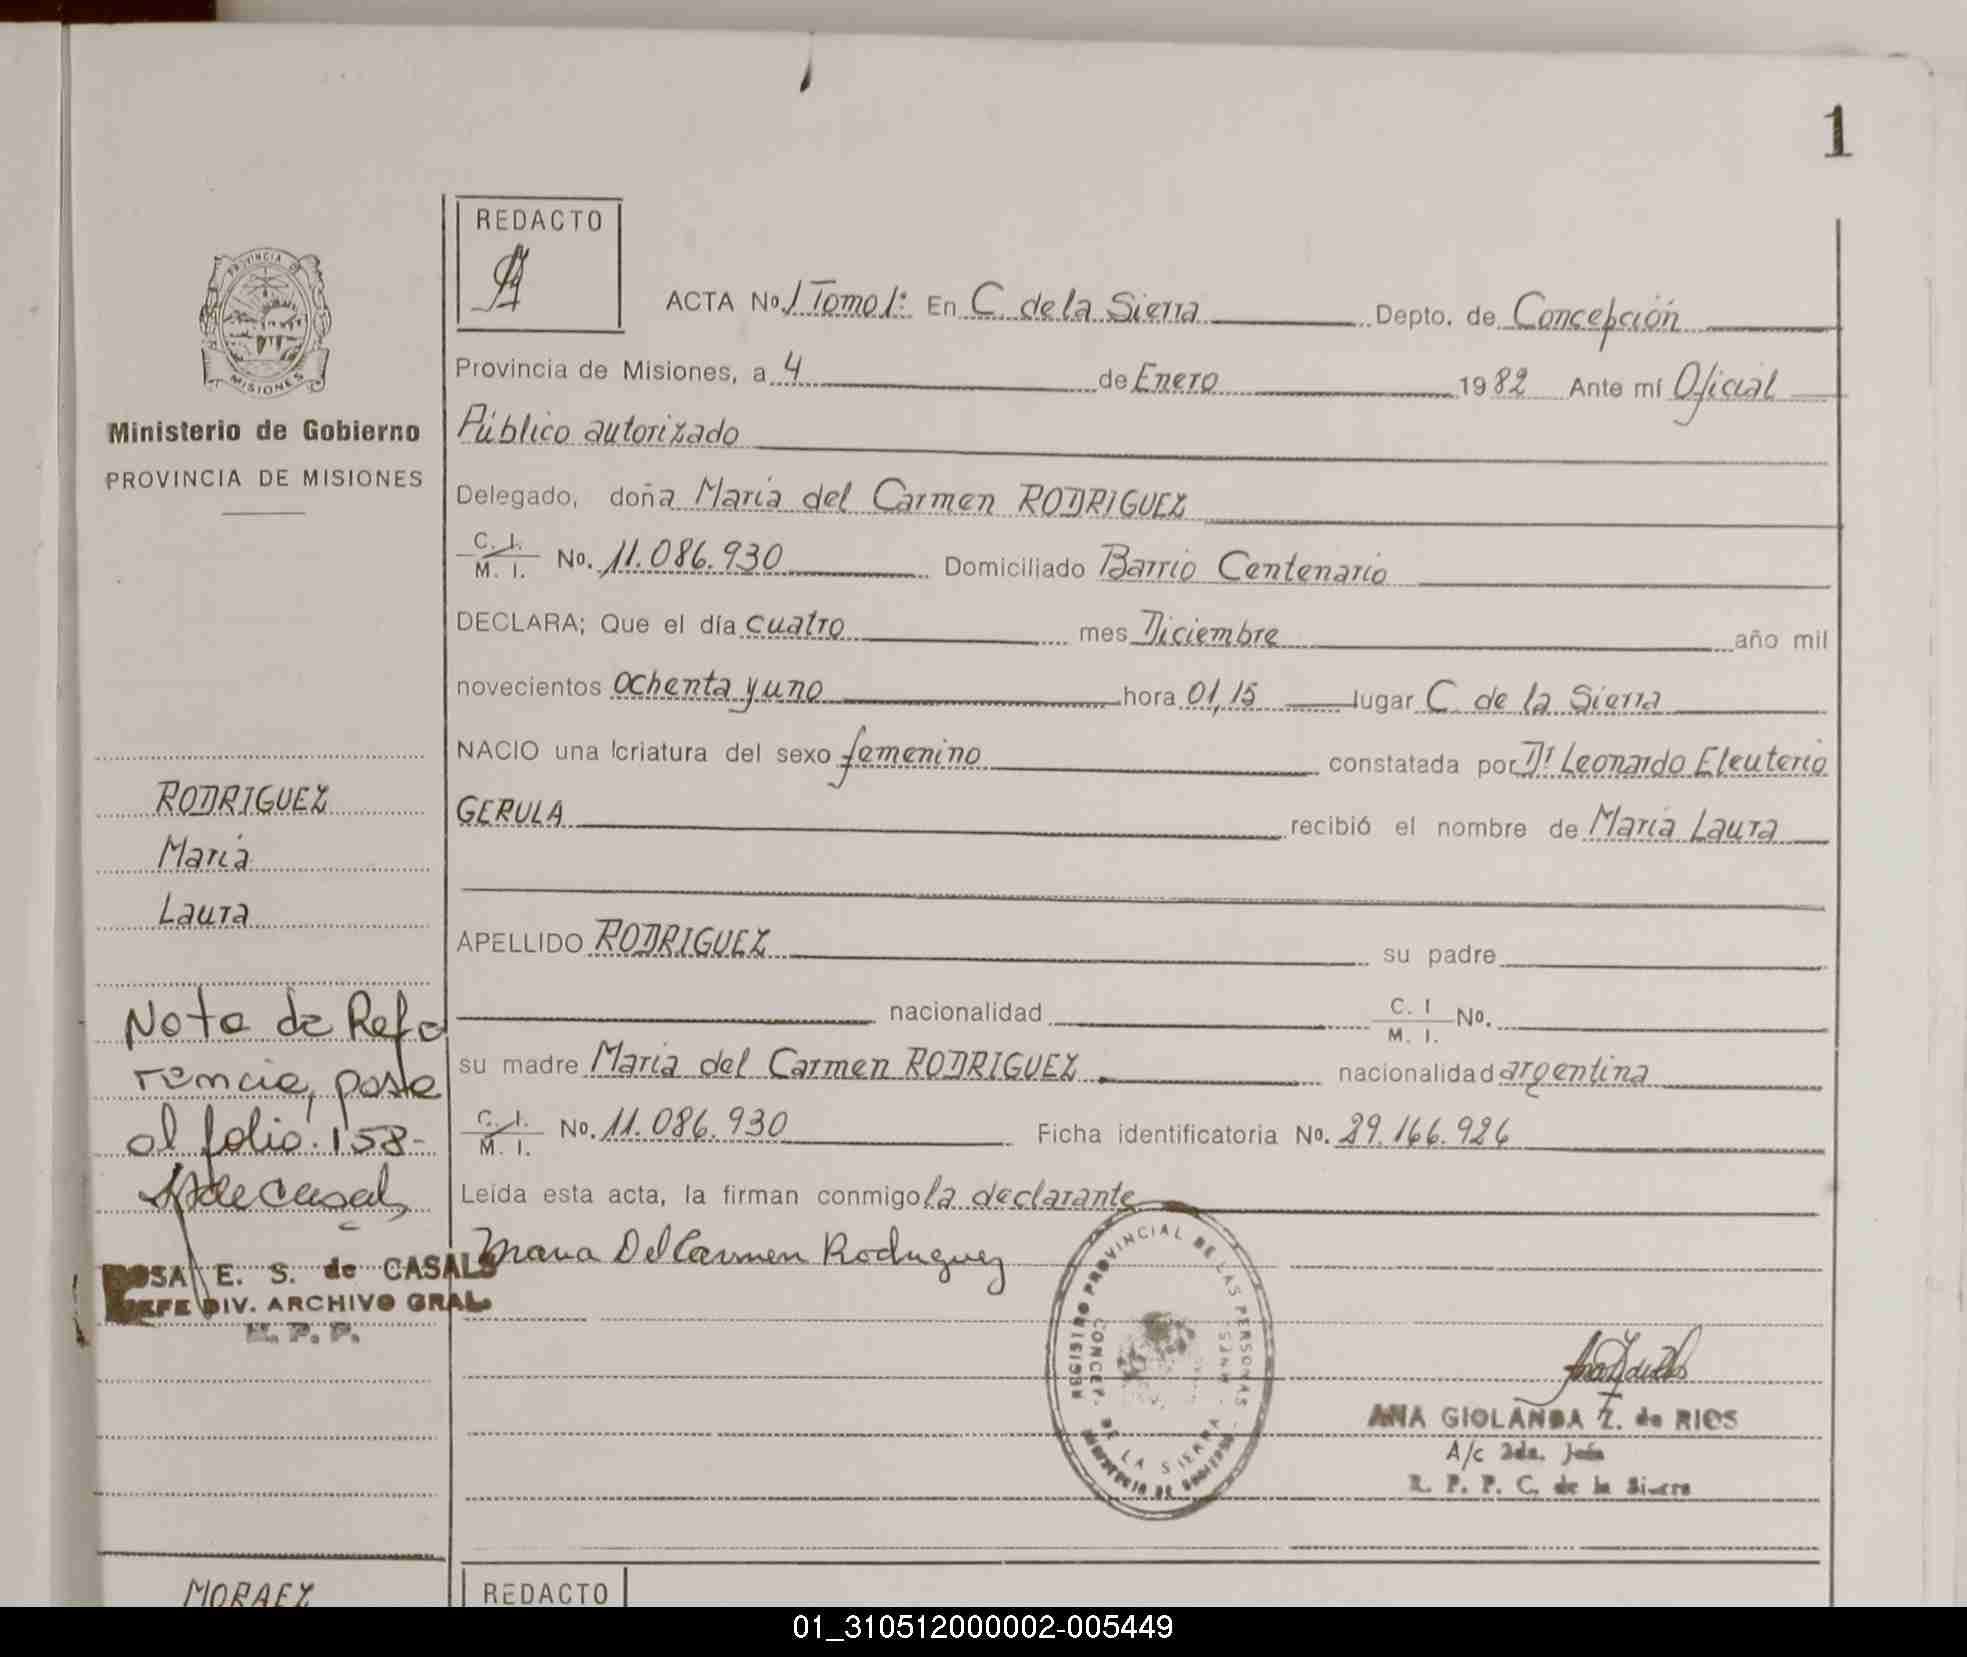 1
PROVINCIA DE
MISIONES
Ministerio de Gobierno
PROVINCIA DE MISIONES
RODRIGUEZ
Maria
Laura
Nota de Refe
rencia, pasa
al folio: 158-
ROSA E. S. de CASALS
JEFE DIV. ARCHIVO GRAL.
R. P. P.
MORAEZ
REDACTO
ACTA No. 1 Tomo 1º En C. de la Sierra Depto. de Concepción
Provincia de Misiones, a 4 de Enero 1982 Ante mí Oficial
Público autorizado
Delegado, doña Maria del Carmen RODRIGUEZ
C. I. / M. I. No. 11.086.930 Domiciliado Barrio Centenario
DECLARA; Que el día cuatro mes Diciembre año mil
novecientos ochenta y uno hora 01,15 lugar C. de la Sierra
NACIO una criatura del sexo femenino constatada por Dr Leonardo Eleuterio
GERULA recibió el nombre de Maria Laura
APELLIDO RODRIGUEZ su padre
nacionalidad C. I / M. I. No.
su madre Maria del Carmen RODRIGUEZ nacionalidad argentina
C. I. / M. I. No. 11.086.930 Ficha identificatoria No. 29.166.926
Leída esta acta, la firman conmigo la declarante
Maria Del Carmen Rodriguez
REGISTRO PROVINCIAL DE LAS PERSONAS
CONCEP. DE LA SIERRA - MNES.
MINISTERIO DE GOBIERNO
ANA GIOLANDA Z. de RIOS
A/c 2da. Jefa
R. P. P. C. de la Sierra
REDACTO
01_310512000002-005449